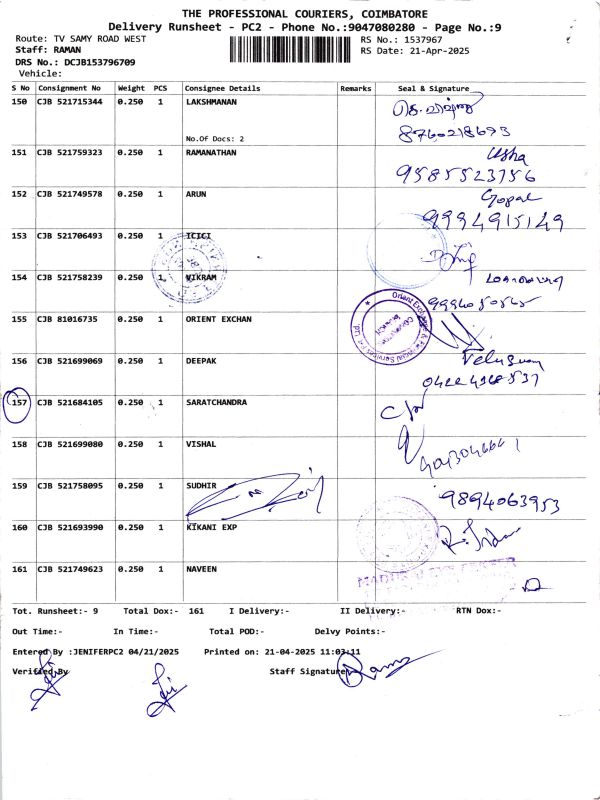 THE PROFESSIONAL COURIERS, COIMBATORE
Delivery Runsheet - PC2 - Phone No.:9047080280 - Page No.:9
Route: TV SAMY ROAD WEST RS No.: 1537967
Staff: RAMAN RS Date: 21-Apr-2025
DRS No.: DCJB153796709
Vehicle:
S No Consignment No Weight PCS Consignee Details Remarks Seal & Signature
150 CJB 521715344 0.250 1 LAKSHMANAN
No.Of Docs: 2 8760218693
151 CJB 521759323 0.250 1 RAMANATHAN Usha
9585523756
152 CJB 521749578 0.250 1 ARUN Gopal
9994915149
153 CJB 521706493 0.250 1 ICICI
154 CJB 521758239 0.250 1 VIKRAM
155 CJB 81016735 0.250 1 ORIENT EXCHAN
156 CJB 521699069 0.250 1 DEEPAK
157 CJB 521684105 0.250 1 SARATCHANDRA
158 CJB 521699080 0.250 1 VISHAL
159 CJB 521758095 0.250 1 SUDHIR 9894063953
160 CJB 521693990 0.250 1 KIKANI EXP
161 CJB 521749623 0.250 1 NAVEEN
Tot. Runsheet:- 9 Total Dox:- 161 I Delivery:- II Delivery:- RTN Dox:-
Out Time:- In Time:- Total POD:- Delvy Points:-
Entered By :JENIFERPC2 04/21/2025 Printed on: 21-04-2025 11:03:11
Verified By Staff Signature